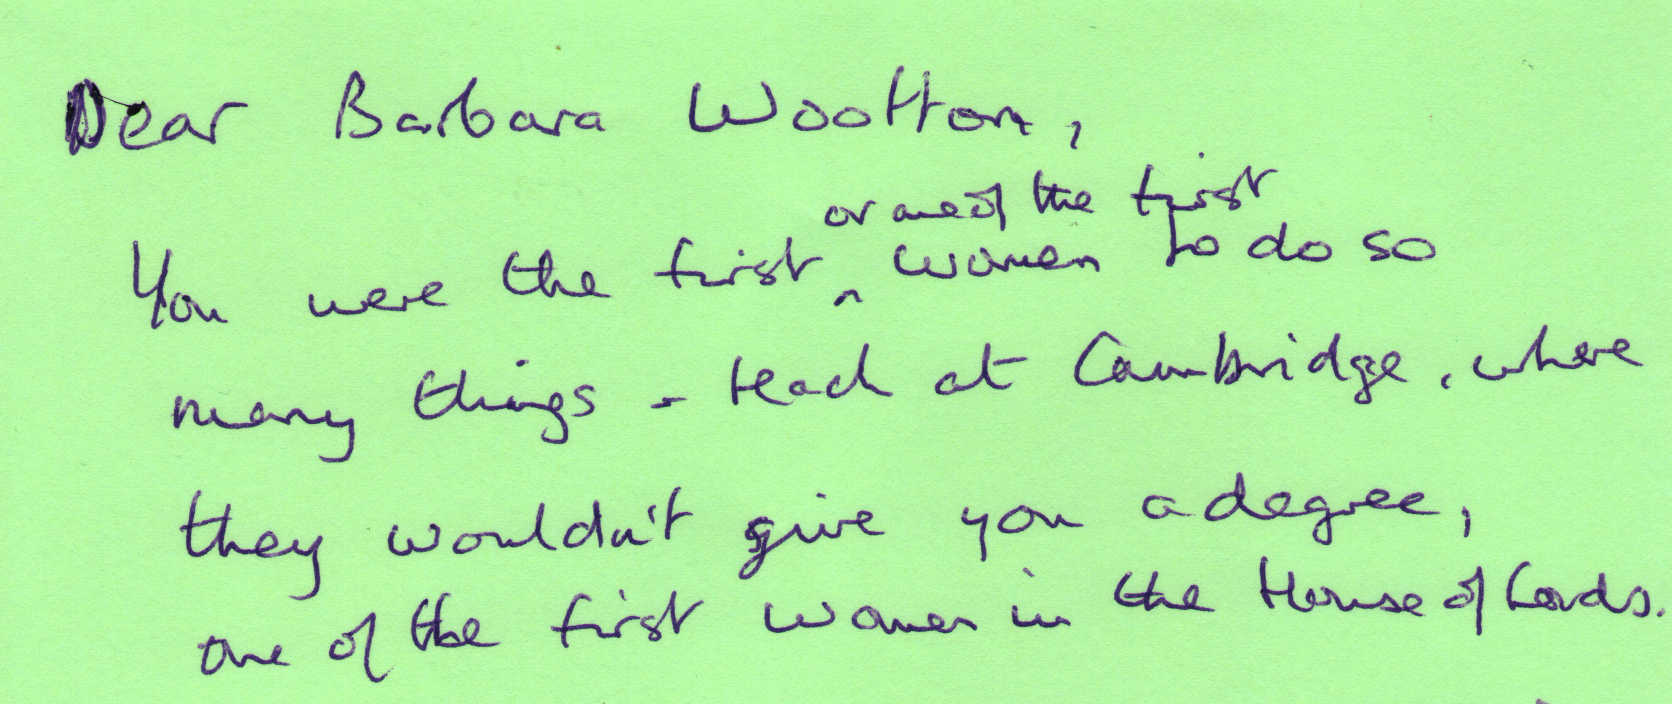 Dear Barbara Wootton,
or one of the first
You were the first ^ women to do so
many things - teach at Cambridge, where
they wouldn't give you a degree,
one of the first women in the House of Lords.